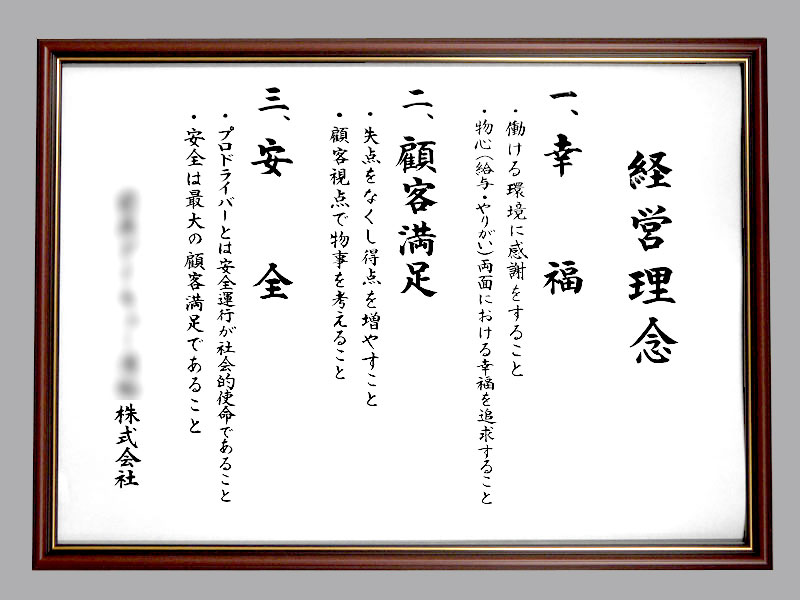 経営理念
一、幸福
・働ける環境に感謝をすること
・物心(給与・やりがい)両面における幸福を追求すること
二、顧客満足
・失点をなくし得点を増やすこと
・顧客視点で物事を考えること
三、安全
・プロドライバーとは安全運行が社会的使命であること
・安全は最大の顧客満足であること
株式会社